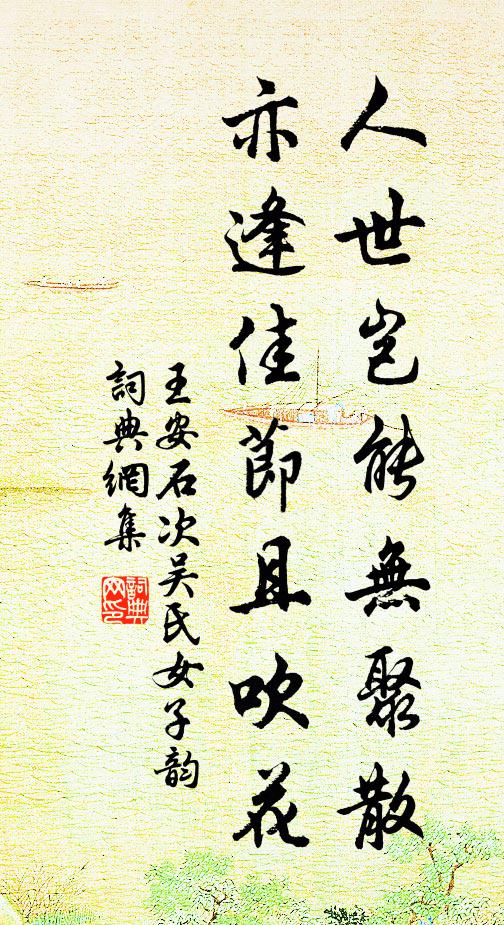 人世岂能無聚散
亦逢佳節且吹花
王安石次吴氏女子韵
詞典網集
詞典
网印